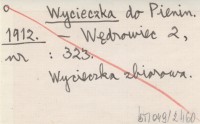 Wycieczka do Pienin.
1912. – Wędrowiec 2,
nr : 323.
Wycieczka zbiorowa.